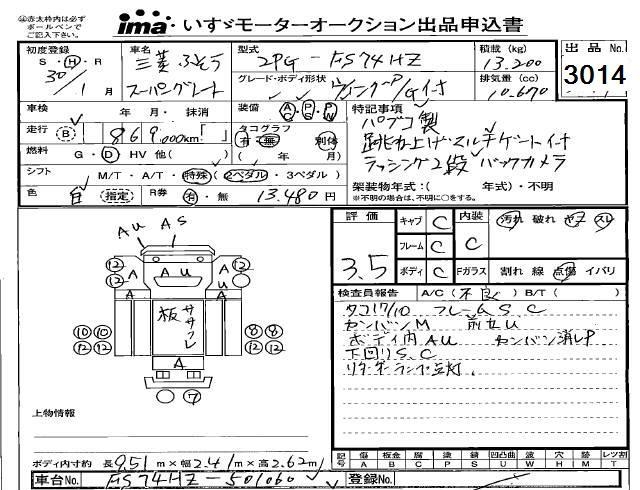 赤太枠内は必ず
ボールペンで
ご記入下さい。
ima いすゞモーターオークション出品申込書
初度登録 S・H・R 30/1月
車名 三菱ふそう スーパーグレート
型式 2PG-FS74HZ
グレード・ボディ形状 ウィング P/Gイナ
積載(kg) 13,200
排気量(cc) 10,670
出品No. 3014
車検 年 月・抹消
装備 AC・PS・PW
走行 B 869,000km「 」
タコグラフ 有・無 別体 ( 年 月)
燃料 G・D・HV 他( )
シフト M/T・A/T・特殊(2ペダル・3ペダル)
色 白 指定
R券 有・無 13,480円
特記事項
パブコ製
跳ね上げマルチゲートイナ
ラッシング2段 バックカメラ
架装物年式:( 年式)・不明
※不明の場合は、不明に○をする。
評価 3.5
キャブ C
フレーム C
ボディ C
内装 C
汚れ 破れ ヤケ スレ
Fガラス 割れ 線 点傷 イバリ
検査員報告 A/C(不良) B/T( )
タコ17/10 フレームS.C
センバンM 前セU
ボディ内AU センバン消しP
下回りS.C
リタダーランプ点灯
AU AS
12 A A 12
12 A U
A A
板 ササクレ
10 10 8 8
12 12 12 12
A
7
上物情報
ボディ内寸約 長9.51m×幅2.41m×高2.62m
記号 傷A 板金B 腐C 塗P 錆S 凹凸曲U 波W 穴H 跡M レンズ割T
車台No. FS74HZ-501060
登録No.